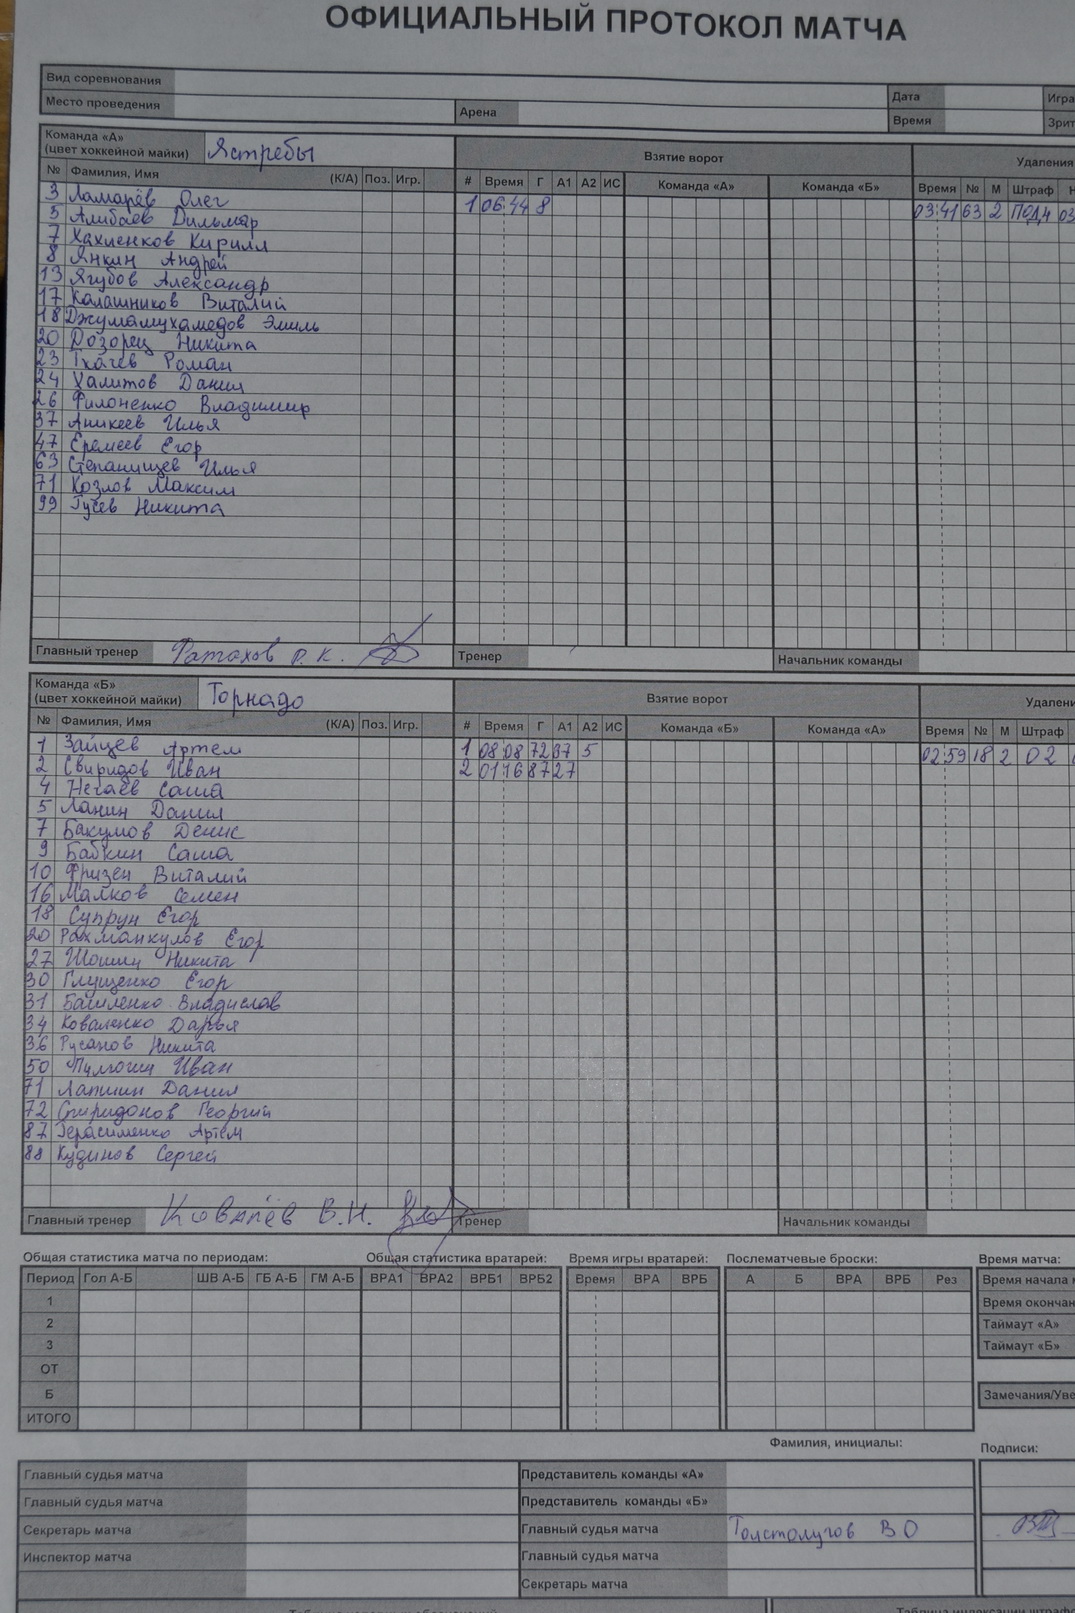 ОФИЦИАЛЬНЫЙ ПРОТОКОЛ МАТЧА
Вид соревнования
Место проведения Арена Дата Игра
Время Зрит
Команда «А»
(цвет хоккейной майки) Ястребы Взятие ворот Удаления
№ Фамилия, Имя (К/А) Поз. Игр. # Время Г А1 А2 ИС Команда «А» Команда «Б» Время № М Штраф Н
3 Ламарёв Олег 1 06:44 8 03:41 63 2 ПОДН 03
5 Алибаев Дильмар
7 Хахленков Кирилл
8 Янкин Андрей
13 Ягубов Александр
17 Калашников Виталий
18 Джумамухамедов Эмиль
20 Дозорец Никита
23 Ткачёв Роман
24 Халитов Данил
26 Филоненко Владимир
37 Аникеев Илья
47 Еремеев Егор
63 Степанищев Илья
71 Козлов Максим
99 Гусев Никита
Главный тренер Фатахов Р. К. Тренер Начальник команды
Команда «Б»
(цвет хоккейной майки) Торнадо Взятие ворот Удалени
№ Фамилия, Имя (К/А) Поз. Игр. # Время Г А1 А2 ИС Команда «Б» Команда «А» Время № М Штраф
1 Зайцев Артем 1 08:08 72 37 5 02:59 18 2 02
2 Свиридов Иван 2 01:16 87 27
4 Негаев Саша
5 Ланин Данил
7 Бакумов Денис
9 Бабкин Саша
10 Фризен Виталий
16 Малков Семен
18 Супрун Егор
20 Рахманкулов Егор
27 Шошин Никита
30 Глущенко Егор
31 Башленко Владислав
34 Коваленко Дарья
36 Русанов Никита
50 Иван
71 Лапшин Данил
72 Спиридонов Георгий
87 Герасименко Артём
88 Кудинов Сергей
Главный тренер Ковалёв В.Н. Тренер Начальник команды
Общая статистика матча по периодам: Общая статистика вратарей: Время игры вратарей: Послематчевые броски: Время матча:
Период Гол А-Б ШВ А-Б ГБ А-Б ГМ А-Б ВРА1 ВРА2 ВРБ1 ВРБ2 Время ВРА ВРБ А Б ВРА ВРБ Рез Время начала
1 Время окончан
2 Таймаут «А»
3 Таймаут «Б»
ОТ
Б Замечания/Уве
ИТОГО
Фамилия, инициалы: Подписи:
Главный судья матча Представитель команды «А»
Главный судья матча Представитель команды «Б»
Секретарь матча Главный судья матча Толстолугов В О
Инспектор матча Главный судья матча
Секретарь матча